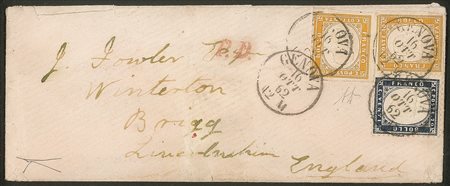 J. Fowler Esqr
P.D.
Winterton
Brigg
Lincolnshire
England
GENOVA
16
OTT
62
12 M
GENOVA
16
OTT
62
GENOVA
16
OTT
62
FRANCO
BOLLO